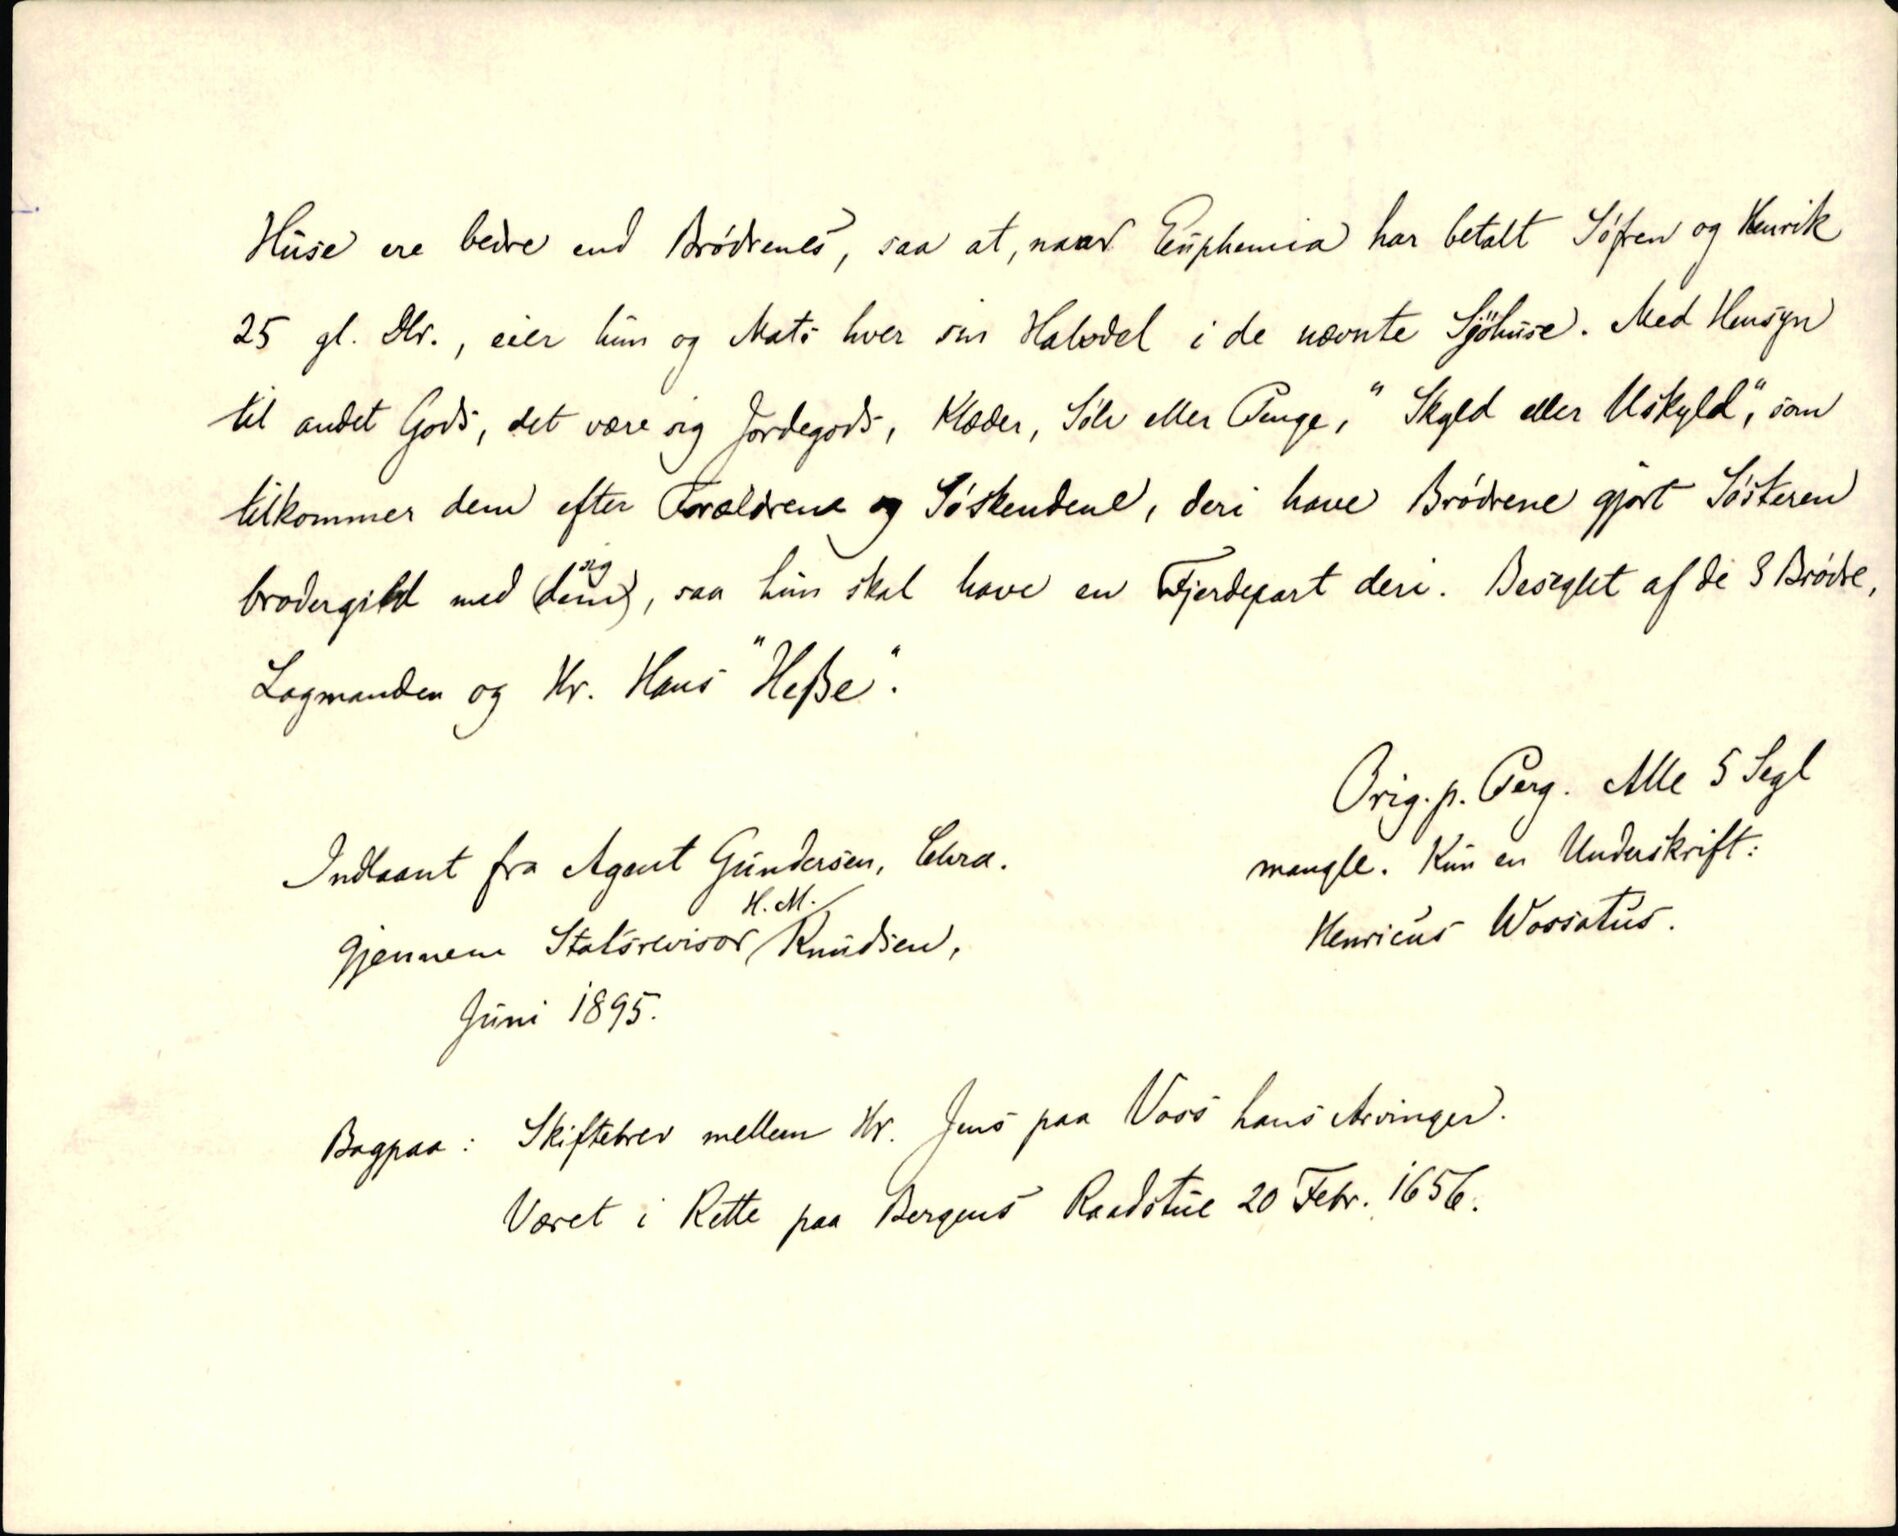 Huse ere bedre end Brödrenes, saa at, naar Euphemia har betalt Söfren og Henrik
25 gl. Dlr., eier hun og Mats hver sin Halvdel i de nævnte Sjöhuse. Med Hensyn
til andet Gods, det være sig Jordegods, Klæder, Sölv eller Penge, "Skyld eller Uskyld", som
tilkommer dem efter Forældrene og Söskendene, deri have Brödrene gjort Sösteren
sig
brodergild med (dem), saa hun skal have en Fjerdepart deri. Beseglet af de 3 Brödre,
Lagmanden og Hr. Hans "Heße".
Orig. p. Perg. Alle 5 Segl
mangle. Kun en Underskrift:
Henricus Wossatus.
Indlaant fra Agent Gundersen, Chra.
H. M.
gjennem Statsrevisor Knudsen,
Juni 1895.
Bagpaa: Skiftebrev mellem Hr. Jens paa Voss hans Arvinger.
Været i Rette paa Bergens Raadstue 20 Febr. 1656.